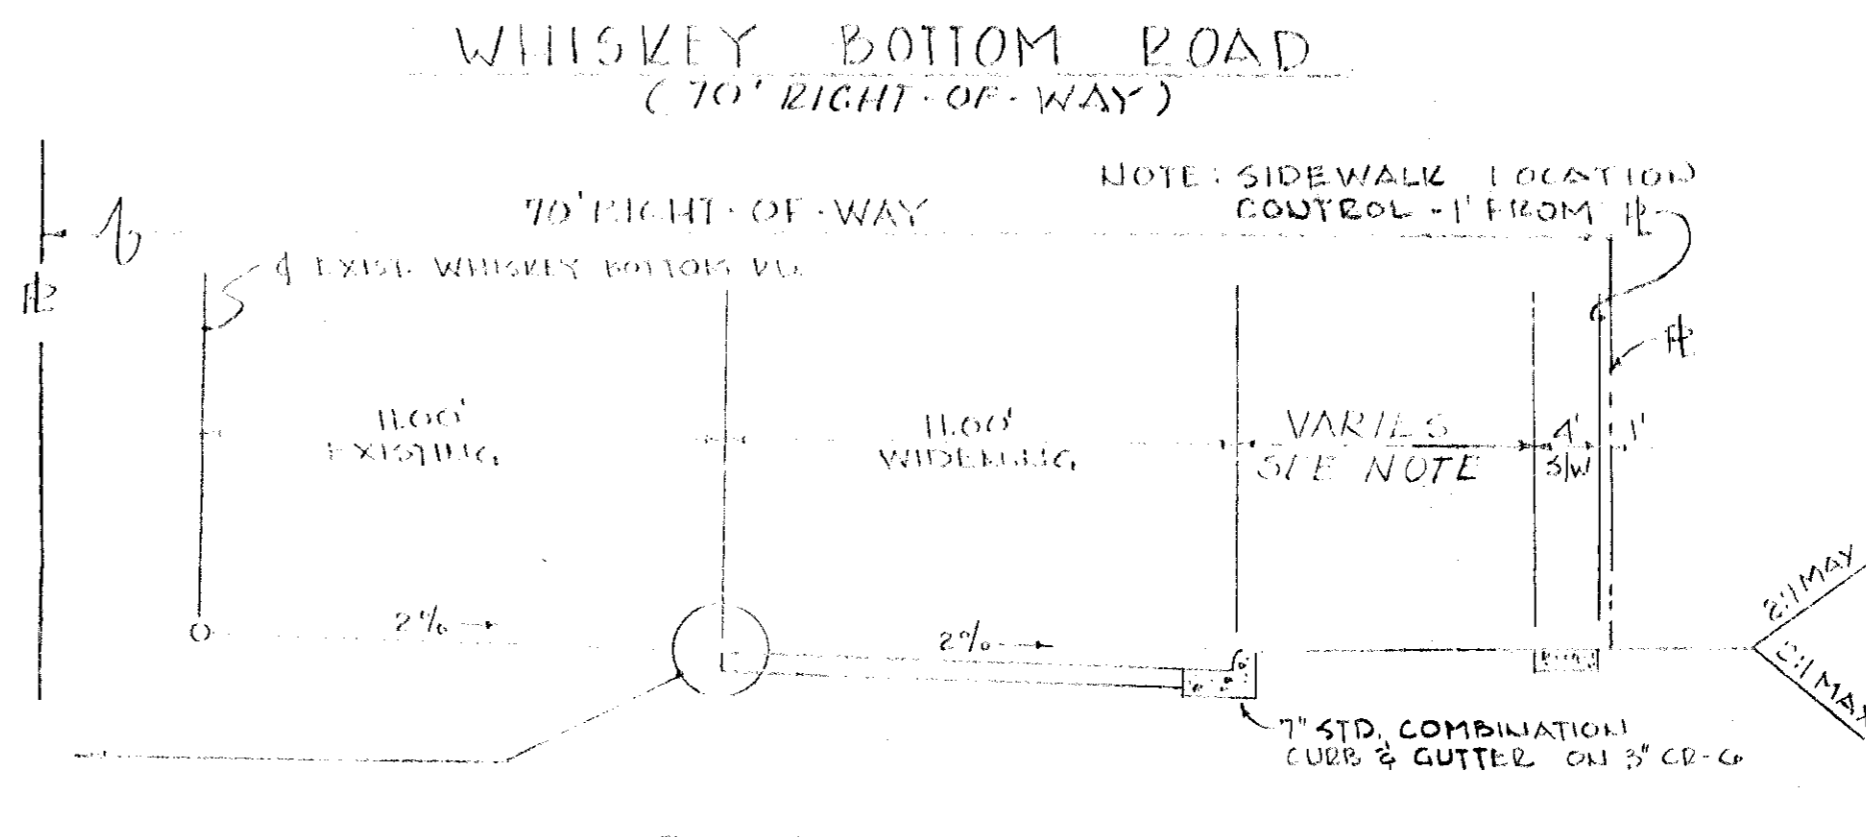 WHISKEY BOTTOM ROAD
(70' RIGHT-OF-WAY)
NOTE: SIDEWALK LOCATION
CONTROL - 1' FROM PL
70' RIGHT-OF-WAY
℄ EXIST. WHISKEY BOTTOM RD.
PL
PL
11.00'
EXISTING
11.00'
WIDENING
VARIES
SEE NOTE
4'
S/W
1'
2%
2%
2:1 MAX
2:1 MAX
7" STD. COMBINATION
CURB & GUTTER ON 3" CR-6